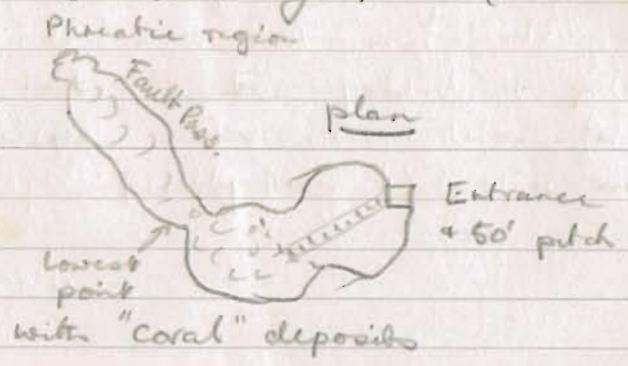 Phreatic region
Fault Pass.
plan
Entrance
+ 50' pitch
Lowest
point
with "coral" deposits